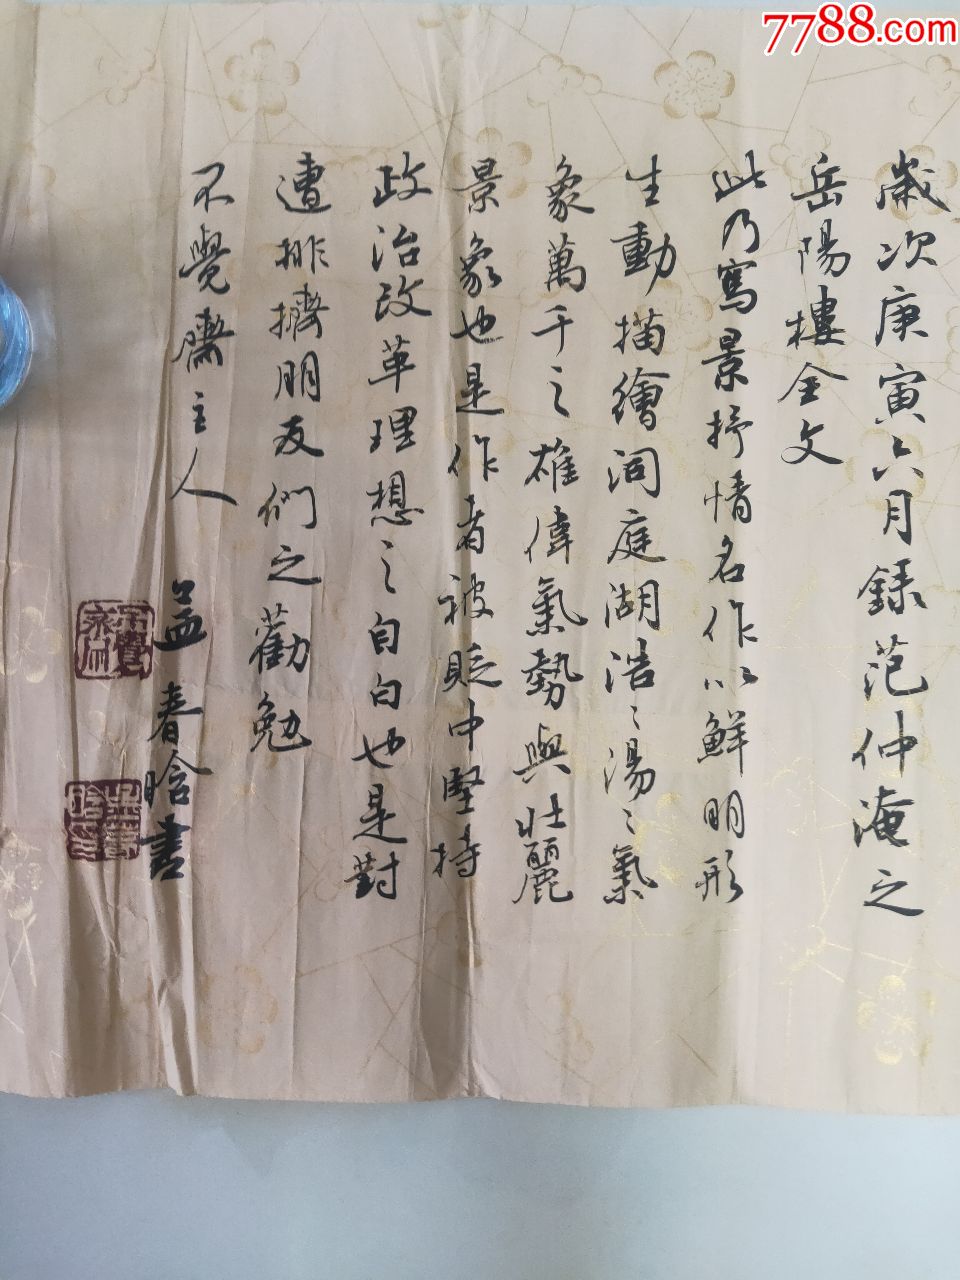 7788.com
歲次庚寅六月録范仲淹之
岳陽樓全文
此乃寫景抒情名作以鮮明形
生動描繪洞庭湖浩〻湯〻氣
象萬千之雄偉氣勢與壯麗
景象也是作者被貶中堅持
政治改革理想之自白也是對
遭排擠朋友們之勸勉
不覺齋主人
孟春晗書